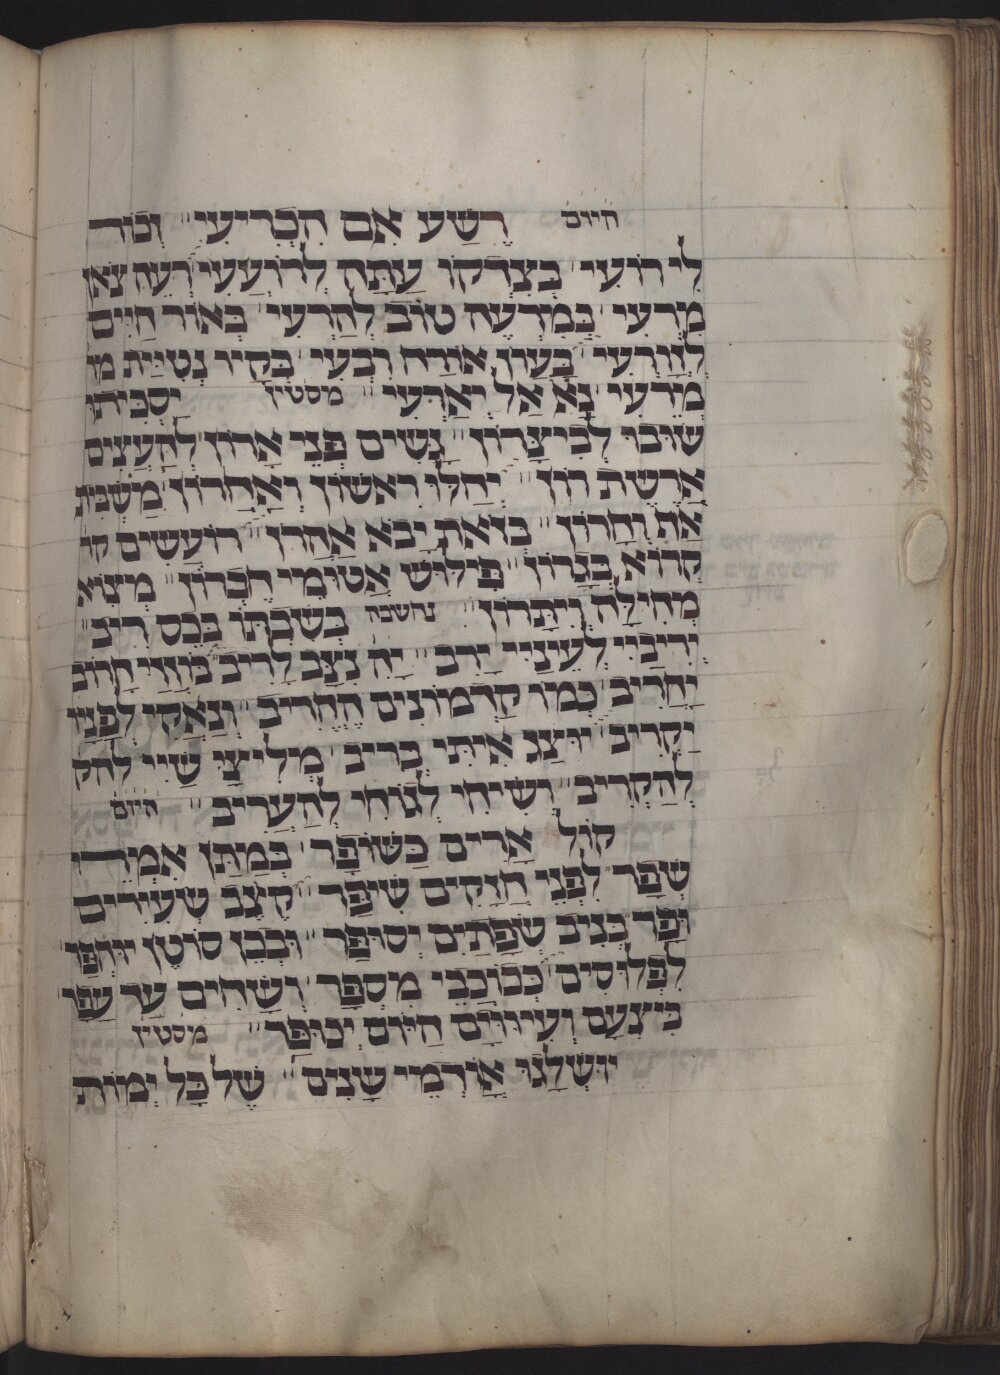 היום רֶשַׁע אִם הִבְרִיעִי״ וְכוּד
לִי רוֹעִי׳ בְּצִדְקוֹ עַתָּה לְרוֹעֲעִי׳ רְעֵה צֹאן
מַרְעִי׳ בְּמַדָּעֵהּ טוֹב לְהַרְעִי׳ בְּאוֹר הַחַיִּים
לְזוֹרְעִי׳ בְּעוֹן אוֹרַח רִבְעִי׳ בְּקִיר נְטִיַּית
מַדָּעִי׳ נָא אַל יְאַרְעִי״ מסטיו יְסַבְּיתִי
שׁוּבוּ לְבִיצָּרוֹן״ נָשִׁים פְּצֵי אָרוֹן לְהַעֲצִים
אֲרֶשֶׁת רוֹן״ יְחַלּוּ רִאשׁוֹן וְאַחֲרוֹן מַשְׁבִּית
אַף וְחָרוֹן״ בְּזֹאת יָבֹא אַהֲרֹן״ רוֹעֲשִׁים
קְרוֹא בְגָרוֹן״ פִּילוּשׁ אֲטוּמֵי חֶבְרוֹן״ מְצוֹא
מְחִילָה וְיִתְרוֹן״ נחשבה בְּשִׁבְתּוֹ בְּכֵס רִיב״
יְרִיבַיי לְעֵינַיי יָרֵב״ יָהּ נִצָּב לָרִיב׳ מְזוֹרֵי חָרוֹב
יַחֲרִיב׳ כְּמוֹ קַדְמוֹנִים הֶחֱרִיב״ וְנַאֲקִי לְפָנָיו
יַקְרִיב׳ יוּצַג אִיתִּי בְּרִיב׳ מְלִיצַי שַׁי לְחֹק
לְהַקְרִיב״ וְשִׂיחִי לְנוֹחִי לְהַעֲרִיב״ היום
קוֹל אָרִים כַּשּׁוֹפָר׳ בְּמַתַּן אִמְרֵי
שֶׁפֶר׳ לִפְנֵי חוֹקִים שִׁיפֵּר״ קֶצֶב שְׂעִירִים
וּפַר׳ בְּנִיב שְׂפָתַיִם יְסוּפָּר״ וּבְכֵן סוֹטֵן יוּחְפָּר
לְפִלּוּסִים׳ כְּכוֹכְבֵי מִסְפָּר וְשַׁחִים עַד עָפָר
כִּי נָעַם וְעִיוּוּיָים הַיּוֹם יְכוּפַּר״ מסטיו
יוּשְׁלַגוּ אֲוֹדְמֵי שָׁנִים״ שֶׁל כָּל יְמוֹת